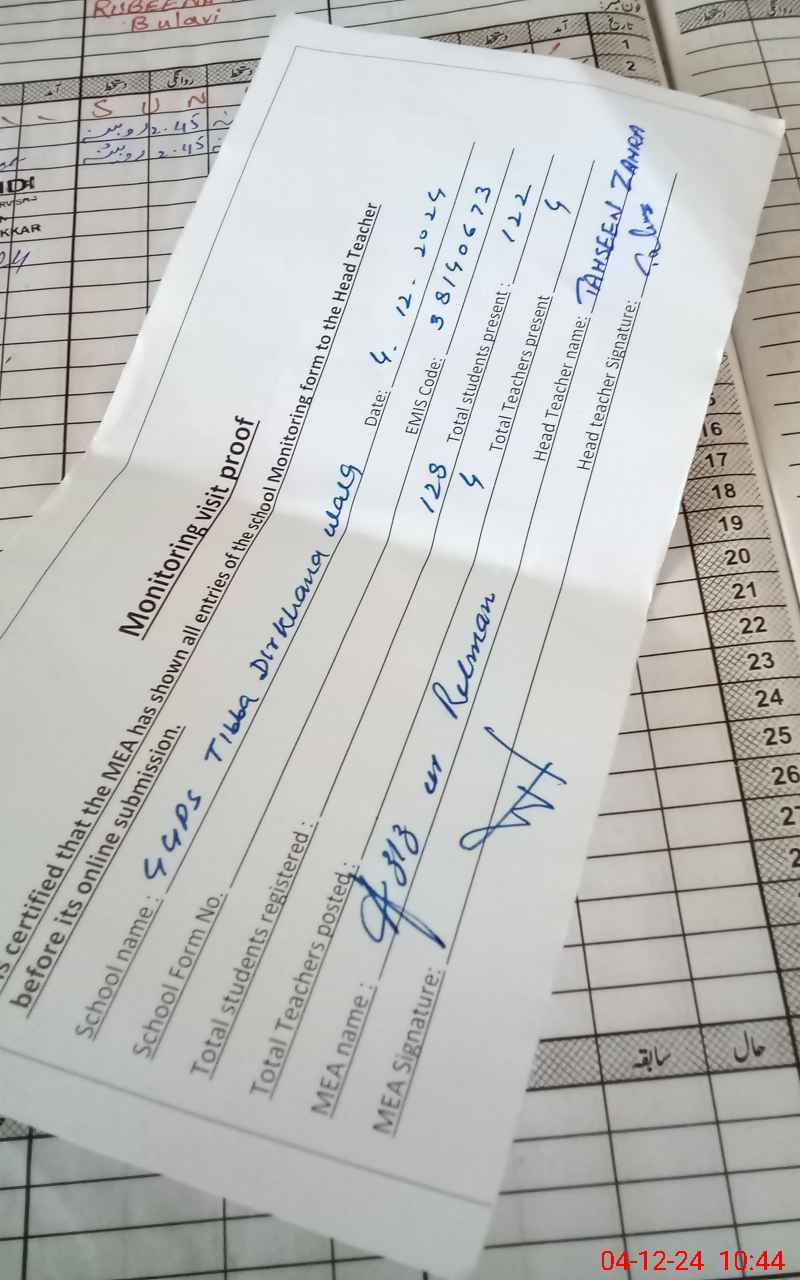 RUBEENA
Bulavi
تاریخ آمد دستخط
1
2
آمد دستخط روانگی دستخط
S U N
روبینہ 2.45
روبینہ 2.45
KKAR
Monitoring visit proof
is certified that the MEA has shown all entries of the school Monitoring form to the Head Teacher
before its online submission.
School name : GGPS Tibba Dirkhana walg Date: 4. 12. 2024
School Form No. EMIS Code: 38140673
Total students registered : 128 Total students present : 122
Total Teachers posted : 4 Total Teachers present 4
MEA name : Aziz ur Rehman Head Teacher name: TAHSEEN ZAHRA
MEA Signature: Head teacher Signature:
16
17
18
19
20
21
22
23
24
25
26
سابقہ حال
04-12-24 10:44